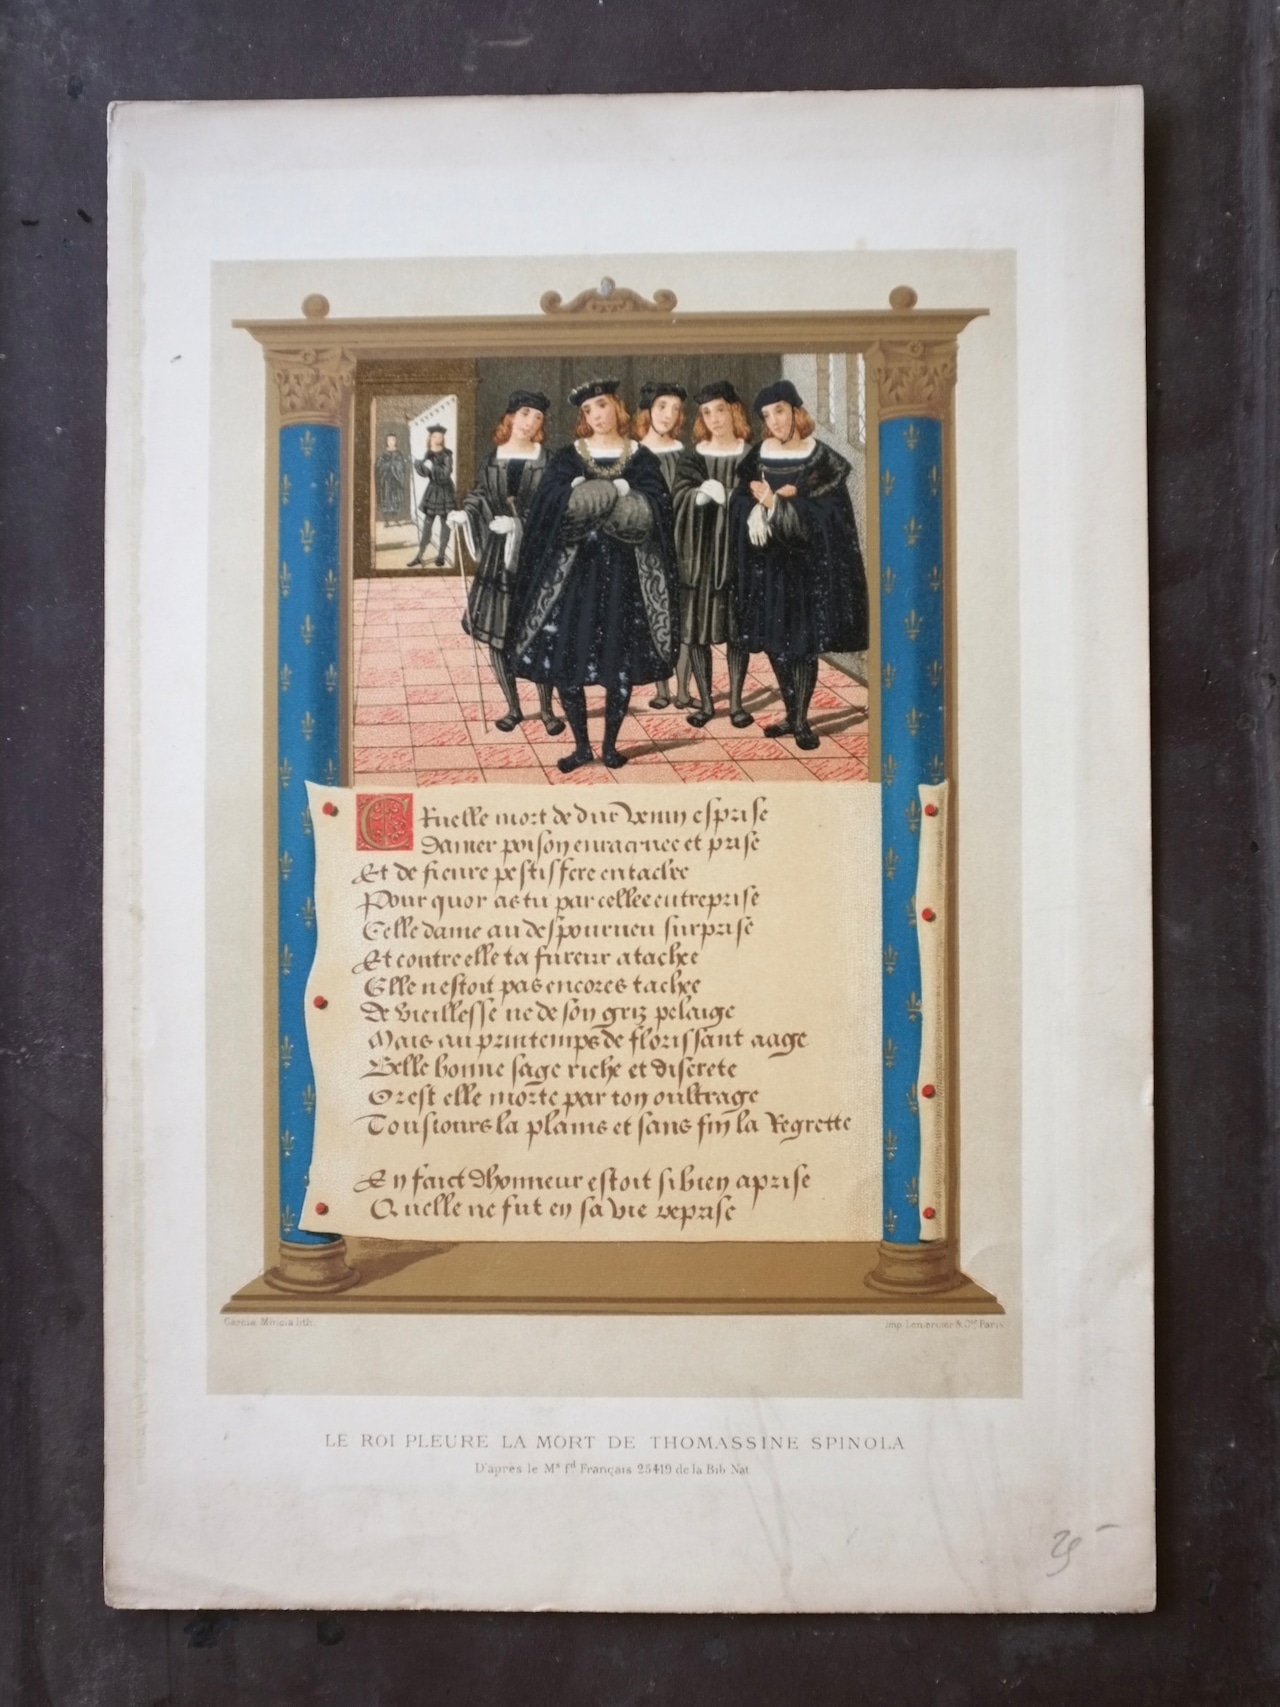 Cruelle mort de dur venin esprise
Damer poison enracinee et prise
Et de fieure pestiffere entachee
Pour quoy as tu par cellee entreprise
Celle dame au despourueu surprise
Et contre elle ta fureur atachee
Elle nestoit pas encores tachee
De vieillesse ne de son griz pelaige
Mais au printemps de florissant aage
Belle bonne sage riche et discrete
Or est elle morte par ton oultrage
Tousiours la plains et sans fin la Regrette
En faict dhonneur estoit si bien aprise
Quelle ne fut en sa vie reprise
Garcia Mincia lith.
Imp. Lemercier & Cie Paris
LE ROI PLEURE LA MORT DE THOMASSINE SPINOLA
D'après le Ms fd Français 25419 de la Bib Nat
25 -